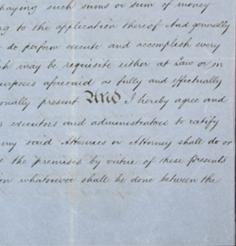 paying such sums or sum of money
ing to the application thereof And generally
to do perform execute and accomplish every
may be requisite either at Law or in
urposes aforesaid as fully and effectually
sonally present And I hereby agree and
executors and administrators to ratify
my said Attornies or Attorney shall do or
the premises by virtue of these presents
whatsoever shall be done between the